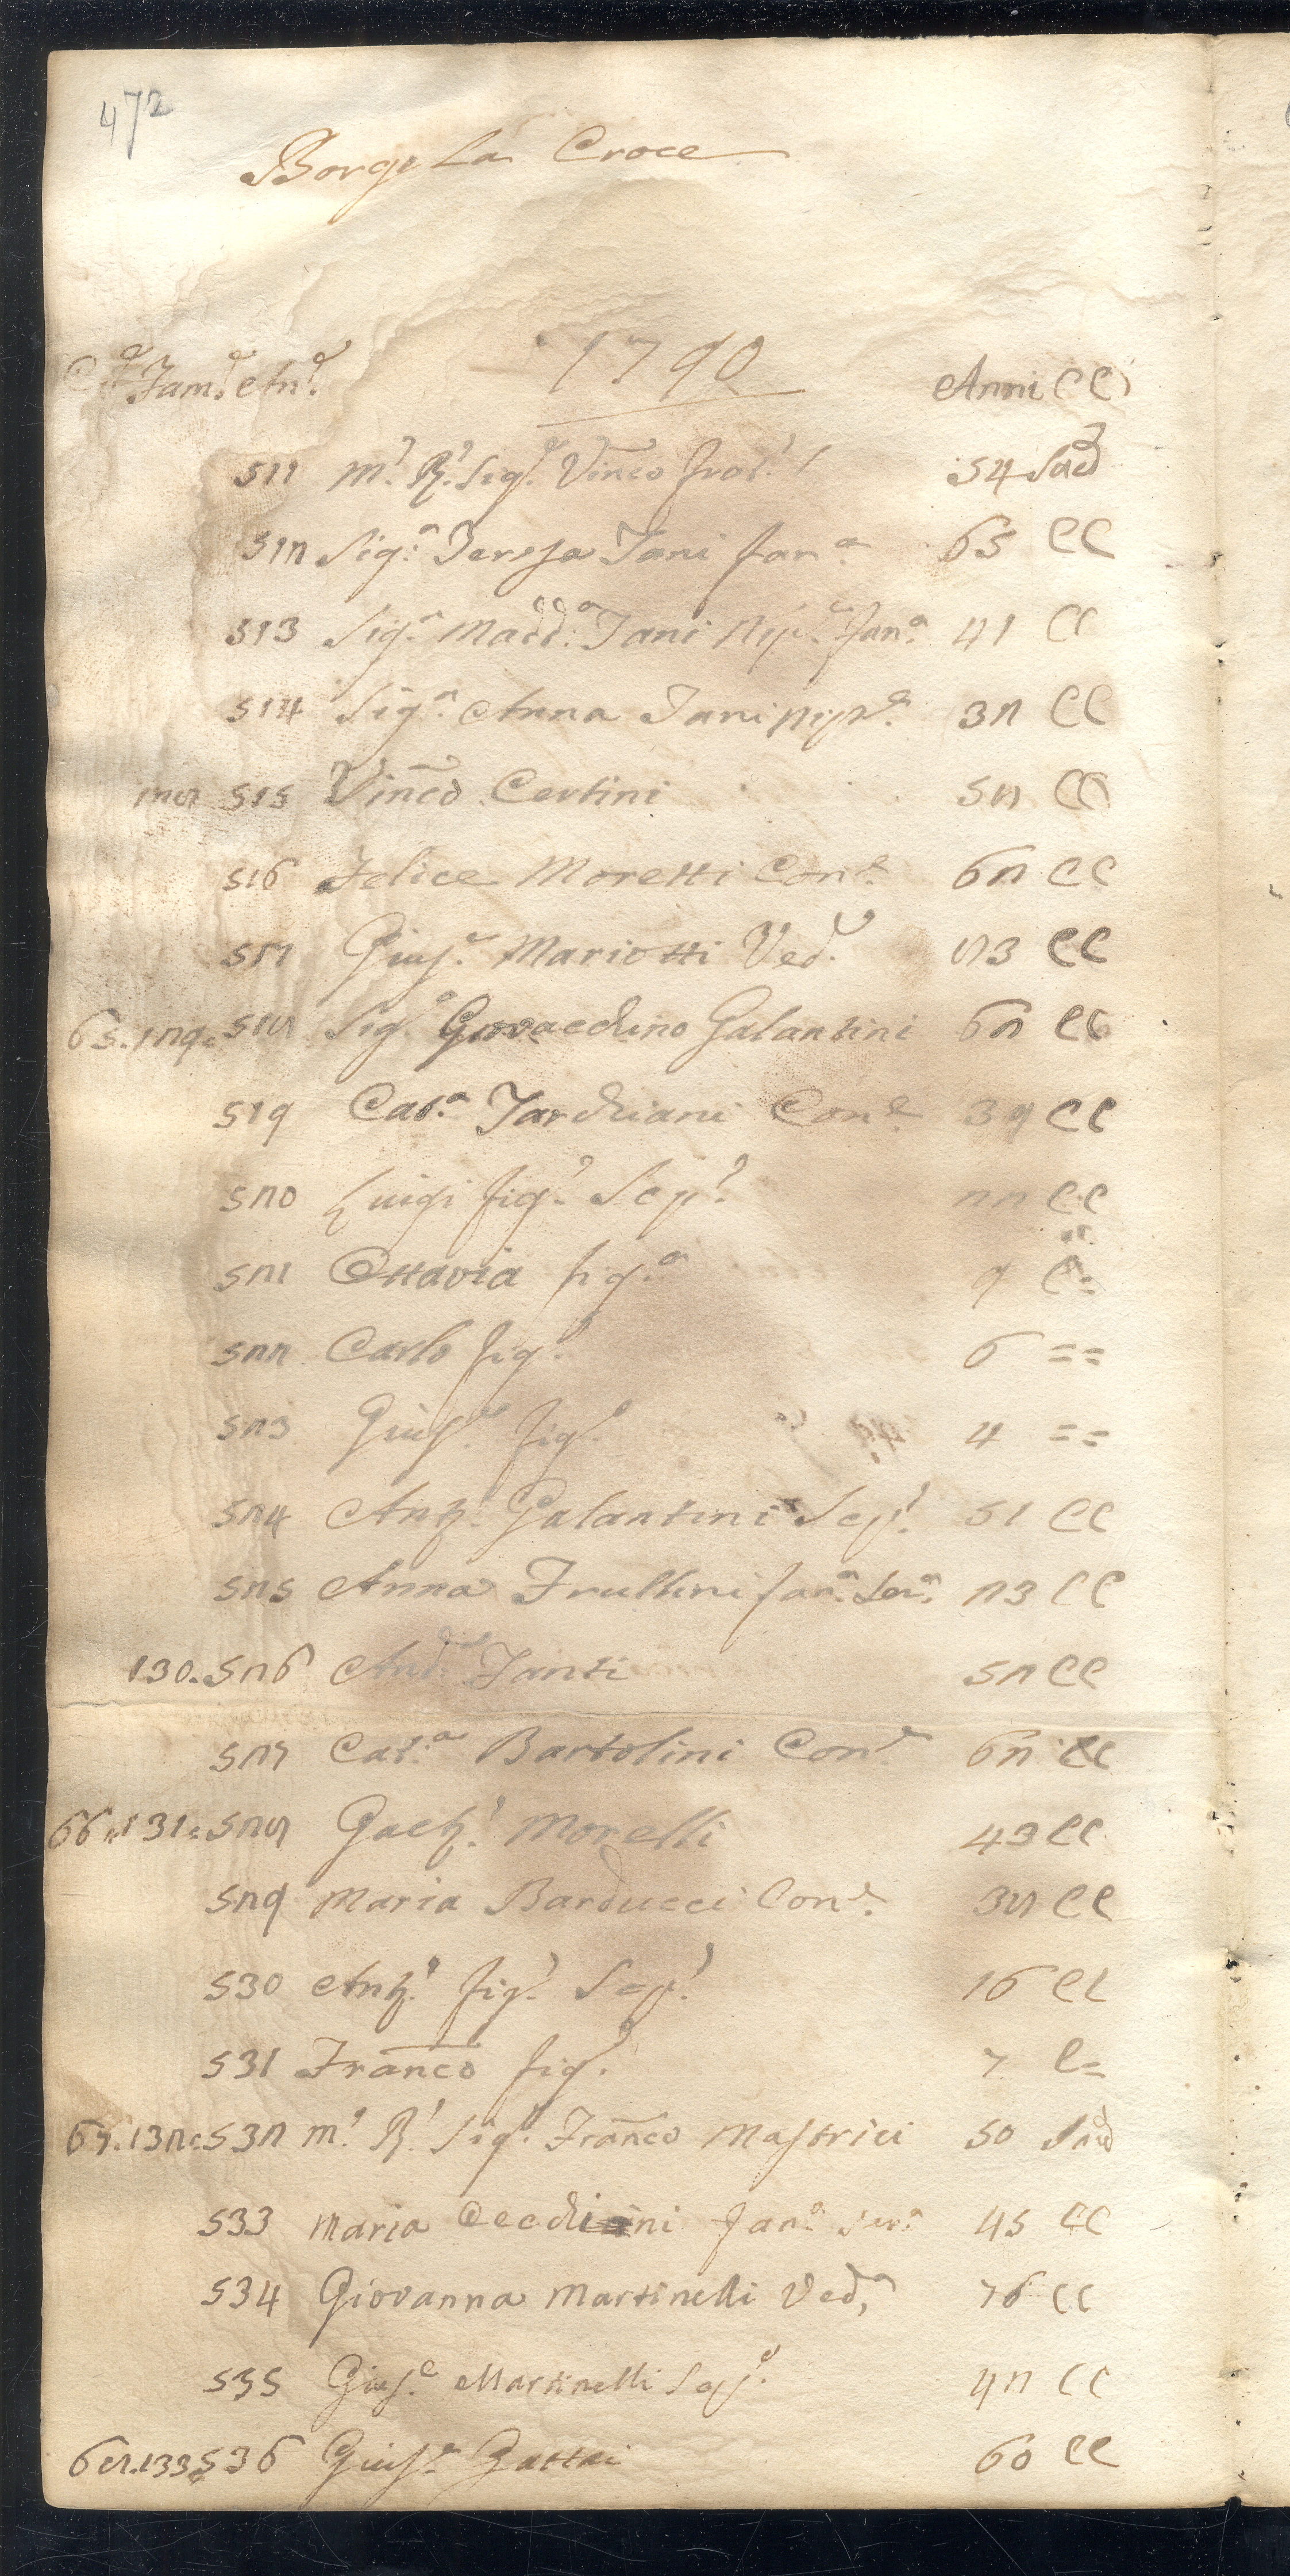 472
Borgo La Croce
1790
C.e Fam.e An.e Anni CC
511 M.o R.o Sig.e Vinc.o frat.o 54 Sacd
512 Sig.a Teresa Tani fan.a 65 CC
513 Sig.a Madd.a Tani Nip.e fan.a 41 CC
514 Sig.a Anna Tani nip.e 32 CC
128 515 Vinc.o Certini 52 CC
516 Felice Moretti Con.e 62 CC
517 Gius.e Mariotti Ved.e 83 CC
65.129. 518 Sig.e Giovacchino Galantini 62 CC
519 Cat.a Tarchiani Con.e 39 CC
520 Luigi fig.o Scap.o 22 CC
521 Ottavia fig.a 9 C=
522 Carlo fig.o 6 ==
523 Gius.e fig.o 4 ==
524 Ant.o Galantini Scap.o 51 CC
525 Anna Frullini fan.a Ser.a 23 CC
130. 526 And.a Fanti 52 CC
527 Cat.a Bartolini Con.e 62 CC
66.131. 528 Gaet.o Morelli 43 CC
529 Maria Barducci Con.e 38 CC
530 Ant.o fig.o Scap.o 16 CC
531 Franco fig.o 7 C=
67.132. 532 M.o R.o Sig.e Franco Mastrici 50 Sacd
533 Maria Cecchini fan.a ser.a 45 CC
534 Giovanna Martinelli Ved.a 76 CC
535 Gius.e Martinelli Scap.o 42 CC
68.133. 536 Gius.e Gattai 60 CC